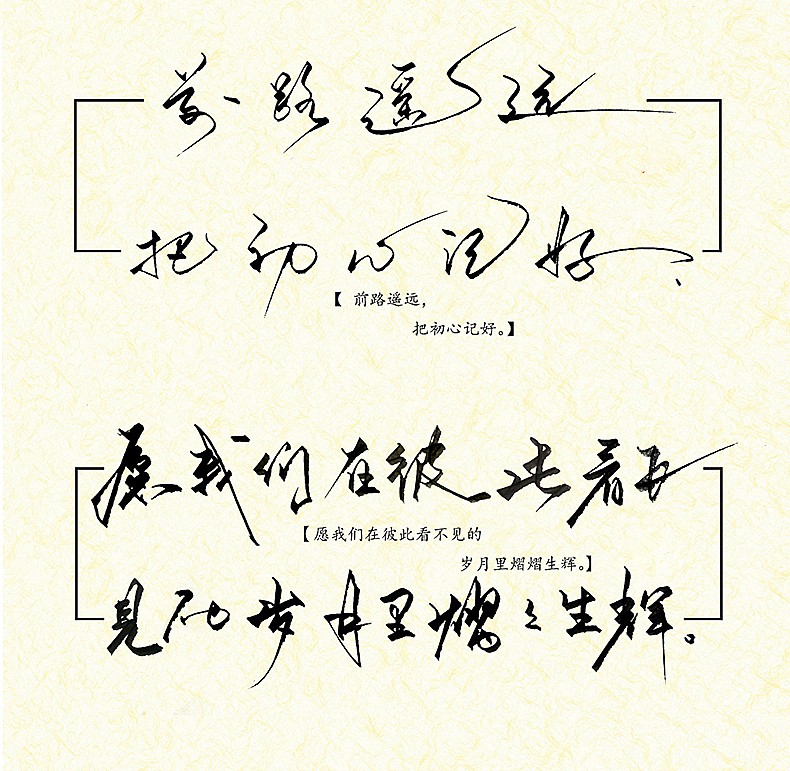 前路遥远
把初心记好、
【 前路遥远，
把初心记好。】
愿我们在彼此看不
【愿我们在彼此看不见的
岁月里熠熠生辉。】
见的岁月里熠々生辉。